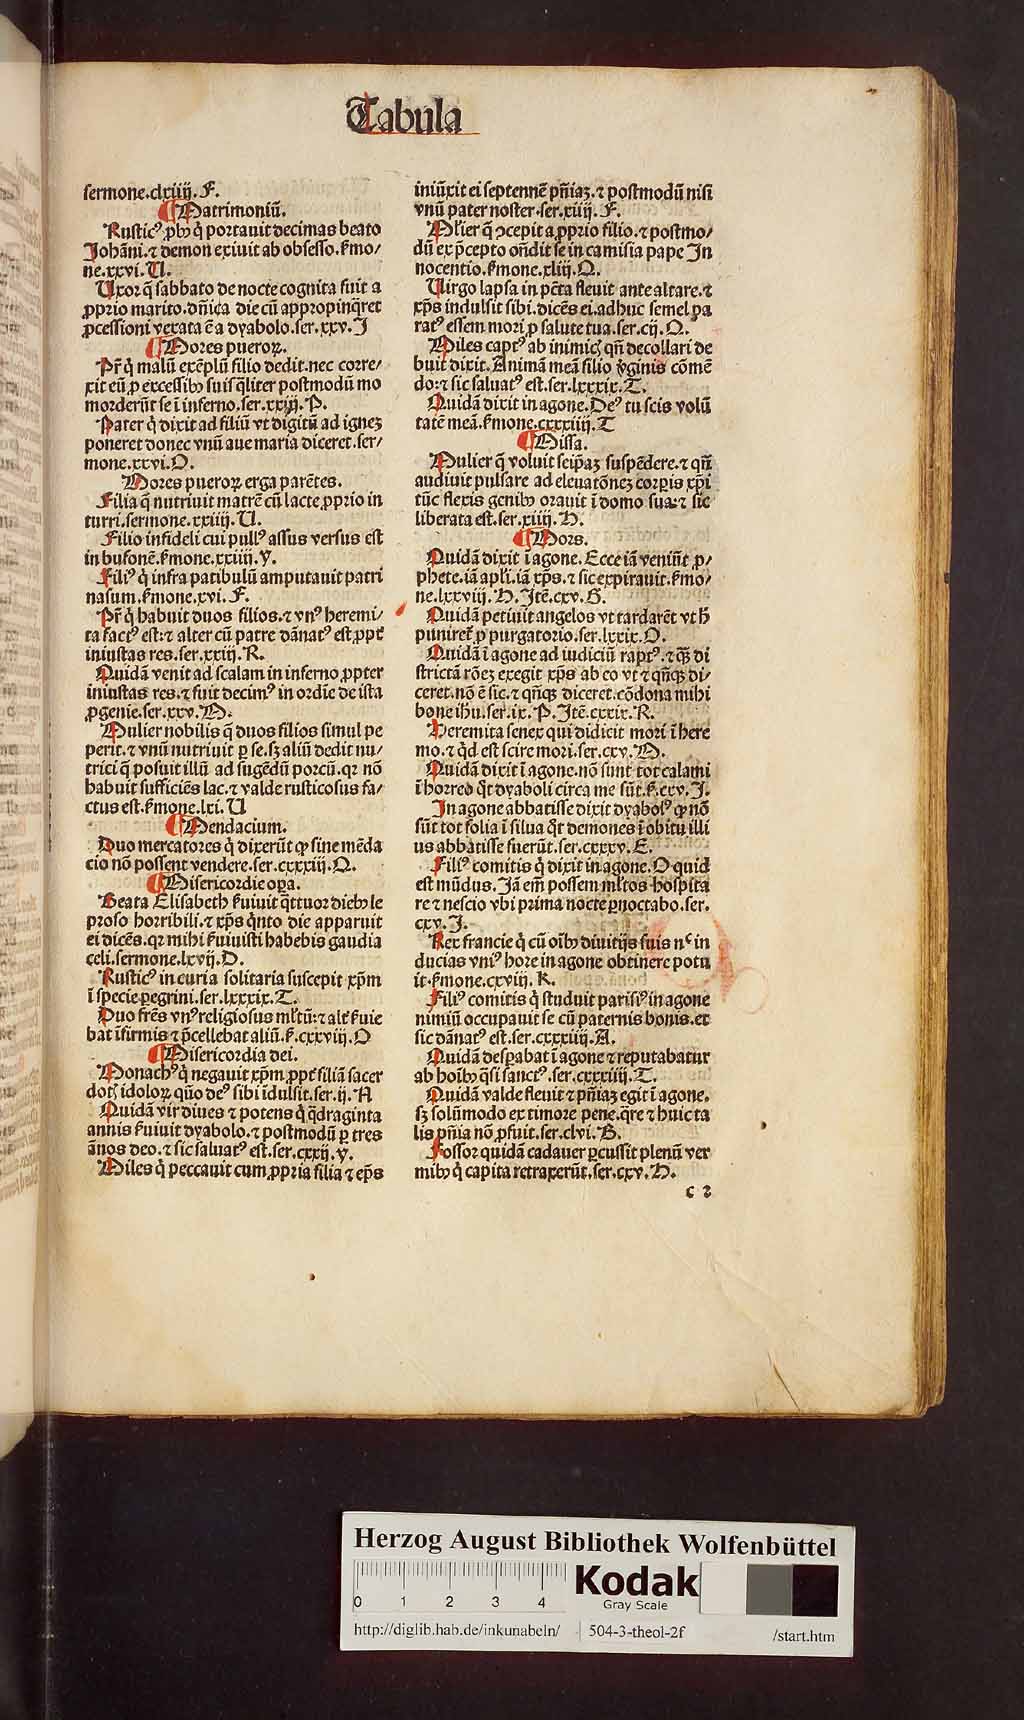 Tabula
sermone.clxiiij. F.
Matrimoniū.
Rusticꝰ ꝓbꝫ q̇ portauit decimas beato
Johāni.⁊ demon exiuit ab obsesso. ẜmo/
ne.xxvi. U.
Uxor q̄ sabbato de nocte cognita fuit a
ꝓprio marito.dn̄ica die cū appropinq̄ret
ꝓcessioni vexata ē a dyabolo.ser.xxv. J
Mores pueroꝝ.
Pr̄ q̇ malū exēplū filio dedit.nec corre/
xit eū ꝓ excessibꝫ suis q̄liter postmodū mo
morderūt se ī inferno.ser.xxiij. P.
Pater q̇ dixit ad filiū vt digitū ad igneꝫ
poneret donec vnū aue maria diceret.ser/
mone.xxvi. O.
Mores pueroꝝ erga parētes.
Filia q̄ nutriuit matrē cū lacte ꝓprio in
turri.sermone.xxiiij. U.
Filio infideli cui pullꝰ assus versus est
in bufonē.ẜmone.xxiiij. y.
Filiꝰ q̇ infra patibulū amputauit patri
nasum.ẜmone.xvi. F.
Pr̄ q̇ habuit duos filios.⁊ vnꝰ heremi/
ta factꝰ est:⁊ alter cū patre dānatꝰ est ꝓpt̄
iniustas res.ser.xxiij. R.
Quidā venit ad scalam in inferno ꝓpter
iniustas res.⁊ fuit decimꝰ in ordīe de ista
ꝓgenie.ser.xxv. M.
Mulier nobilis q̄ duos filios simul pe
perit.⁊ vnū nutriuit ꝑ se.sꝫ aliū dedit nu/
trici q̄ posuit illū ad sugēdū porcū.qꝛ nō
habuit sufficiēs lac.⁊ valde rusticosus fa/
ctus est.ẜmone.lxi. U
Mendacium.
Duo mercatores q̇ dixerūt ꝙ sine mēda
cio nō possent vendere.ser.cxxxiij. Q.
Misericordie oꝑa.
Beata Elisabeth ẜuiuit q̄ttuor diebꝫ le
proso horribili.⁊ xp̄s q̇nto die apparuit
ei dicēs.qꝛ mihi ẜuiuisti habebis gaudia
celi.sermone.lxvij. D.
Rusticꝰ in curia solitaria suscepit xp̄m
ī specie ꝑegrini.ser.lxxxix. T.
Duo fr̄es vnꝰ religiosus ml̄tū:⁊ alt̄ ẜuie
bat īfirmis ⁊ p̄cellebat aliū.ẜ.cxxviij. O
Misericordia dei.
Monachꝰ q̇ negauit xp̄m ꝓpt̄ filiā sacer
dotꝭ idoloꝝ quō deꝰ sibi īdulsit.ser.ij. A
Quidā vir diues ⁊ potens q̇ q̄draginta
annis ẜuiuit dyabolo.⁊ postmodū ꝑ tres
ānos deo.⁊ sic saluatꝰ est.ser.cxxij. y.
Miles q̇ peccauit cum ꝓpria filia ⁊ ep̄s
iniūxit ei septennē pn̄iaꝫ.⁊ postmodū nisi
vnū pater noster.ser.xiij. F.
Mlier q̄ ꝯcepit a ꝓprio filio.⁊ postmo/
dū ex p̄cepto on̄dit se in camisia pape In
nocentio.ẜmone.xliij. Q.
Virgo lapsa in pc̄ta fleuit ante altare.⁊
xp̄s indulsit sibi.dicēs ei.adhuc semel pa
ratꝰ essem mori ꝓ salute tua.ser.cij. Q.
Miles captꝰ ab inimicꝭ qn̄ decollari de
buit dixit. Animā meā filio v̄ginis comē
do:⁊ sic saluatꝰ est.ser.lxxxix. T.
Quidā dixit in agone. Deꝰ tu scis volū
tatē meā.ẜmone.cxxxiiij. T
Missa.
Mulier q̄ voluit seip̄aꝫ suspēdere.⁊ qn̄
audiuit pulsare ad eleuatōneꝫ corꝑis xp̄i
tūc flexis genibꝫ orauit ī domo sua:⁊ sic
liberata est.ser.xiiij. H.
Mors.
Quidā dixit ī agone. Ecce iā veniūt ꝓ/
phete.iā apl̄i.iā xp̄s.⁊ sic expirauit.ẜmo/
ne.lxxviij. H. Itē.cxv. G.
Quidā petiuit angelos vt tardarēt vt h̄
puniret̄ ꝓ purgatorio.ser.lxxix. O.
Quidā ī agone ad iudiciū raptꝰ.⁊ qꝫ di
strictā rōeꝫ exegit xp̄s ab eo vt ⁊ qn̄qꝫ di/
ceret.nō ē sic.⁊ qn̄qꝫ diceret.cōdona mihi
bone ihū.ser.ix. P. Itē.cxxix. R.
Heremita senex qui didicit mori ī here
mo.⁊ q̇d est scire mori.ser.cxv. M.
Quidā dixit ī agone.nō sunt tot calami
ī horreo q̄t dyaboli circa me sūt.ẜ.cxv. J.
In agone abbatisse dixit dyabolꝰ ꝙ nō
sūt tot folia ī silua q̄t demones ī obitu illi
us abbatisse fuerūt.ser.cxxxv. E.
Filiꝰ comitis q̇ dixit in agone. O quid
est mūdus. Iā em̄ possem ml̄tos hospita
re ⁊ nescio vbi prima nocte ꝑnoctabo.ser.
cxv. J.
Rex francie q̇ cū oībꝫ diuitijs suis nᶜ in
ducias vniꝰ hore in agone obtinere potu
it.ẜmone.cxviij. K.
Filiꝰ comitis q̇ studuit parisiꝰ in agone
nimiū occupauit se cū paternis bonis.et
sic dānatꝰ est.ser.cxxxiiij. A.
Quidā desꝑabat ī agone ⁊ reputabatur
ab hoībꝫ q̄si sanctꝰ.ser.cxxxiiij. T.
Quidā valde fleuit ⁊ pn̄iaꝫ egit ī agone.
sꝫ solūmodo ex timore pene.q̄re ⁊ huic ta
lis pn̄ia nō ꝓfuit.ser.clvi. B.
Fossor quidā cadauer ꝑcussit plenū ver
mibꝫ q̇ capita retraxerūt.ser.cxv. H.
c 2
Herzog August Bibliothek Wolfenbüttel
0 1 2 3 4
Kodak
Gray Scale
http://diglib.hab.de/inkunabeln/ 504-3-theol-2f /start.htm